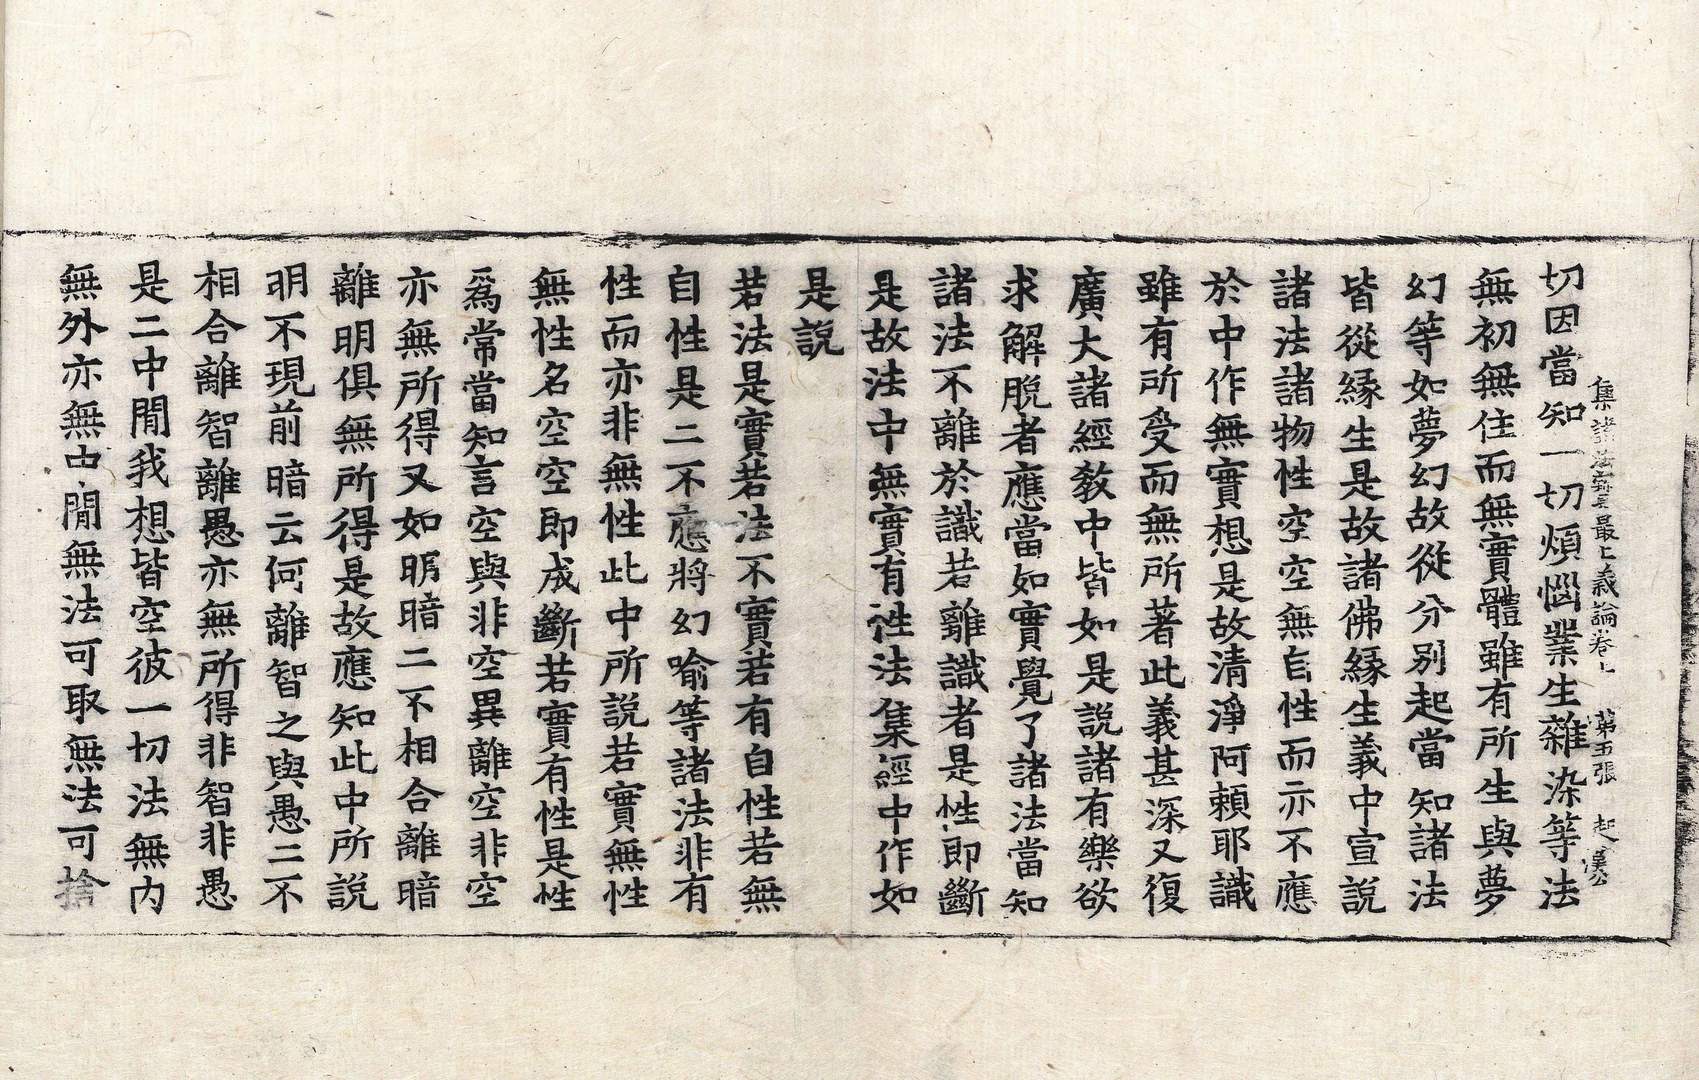 集諸法寶最上義論卷上　第五張　起
切因當知一切煩惱業生雜染等法
無初無住而無實體雖有所生與夢
幻等如夢幻故從分別起當知諸法
皆從緣生是故諸佛緣生義中宣說
諸法諸物性空空無自性而亦不應
於中作無實想是故清淨阿賴耶識
雖有所受而無所著此義甚深又復
廣大諸經教中皆如是說諸有樂欲
求解脫者應當如實覺了諸法當知
諸法不離於識若離識者是性即斷
是故法中無實有性法集經中作如
是說
若法是實若法不實若有自性若無
自性是二不應將幻喻等諸法非有
性而亦非無性此中所說若實無性
無性名空空即成斷若實有性是性
爲常當知言空與非空異離空非空
亦無所得又如明暗二不相合離暗
離明俱無所得是故應知此中所說
明不現前暗云何離智之與愚二不
相合離智離愚亦無所得非智非愚
是二中閒我想皆空彼一切法無內
無外亦無中閒無法可取無法可捨